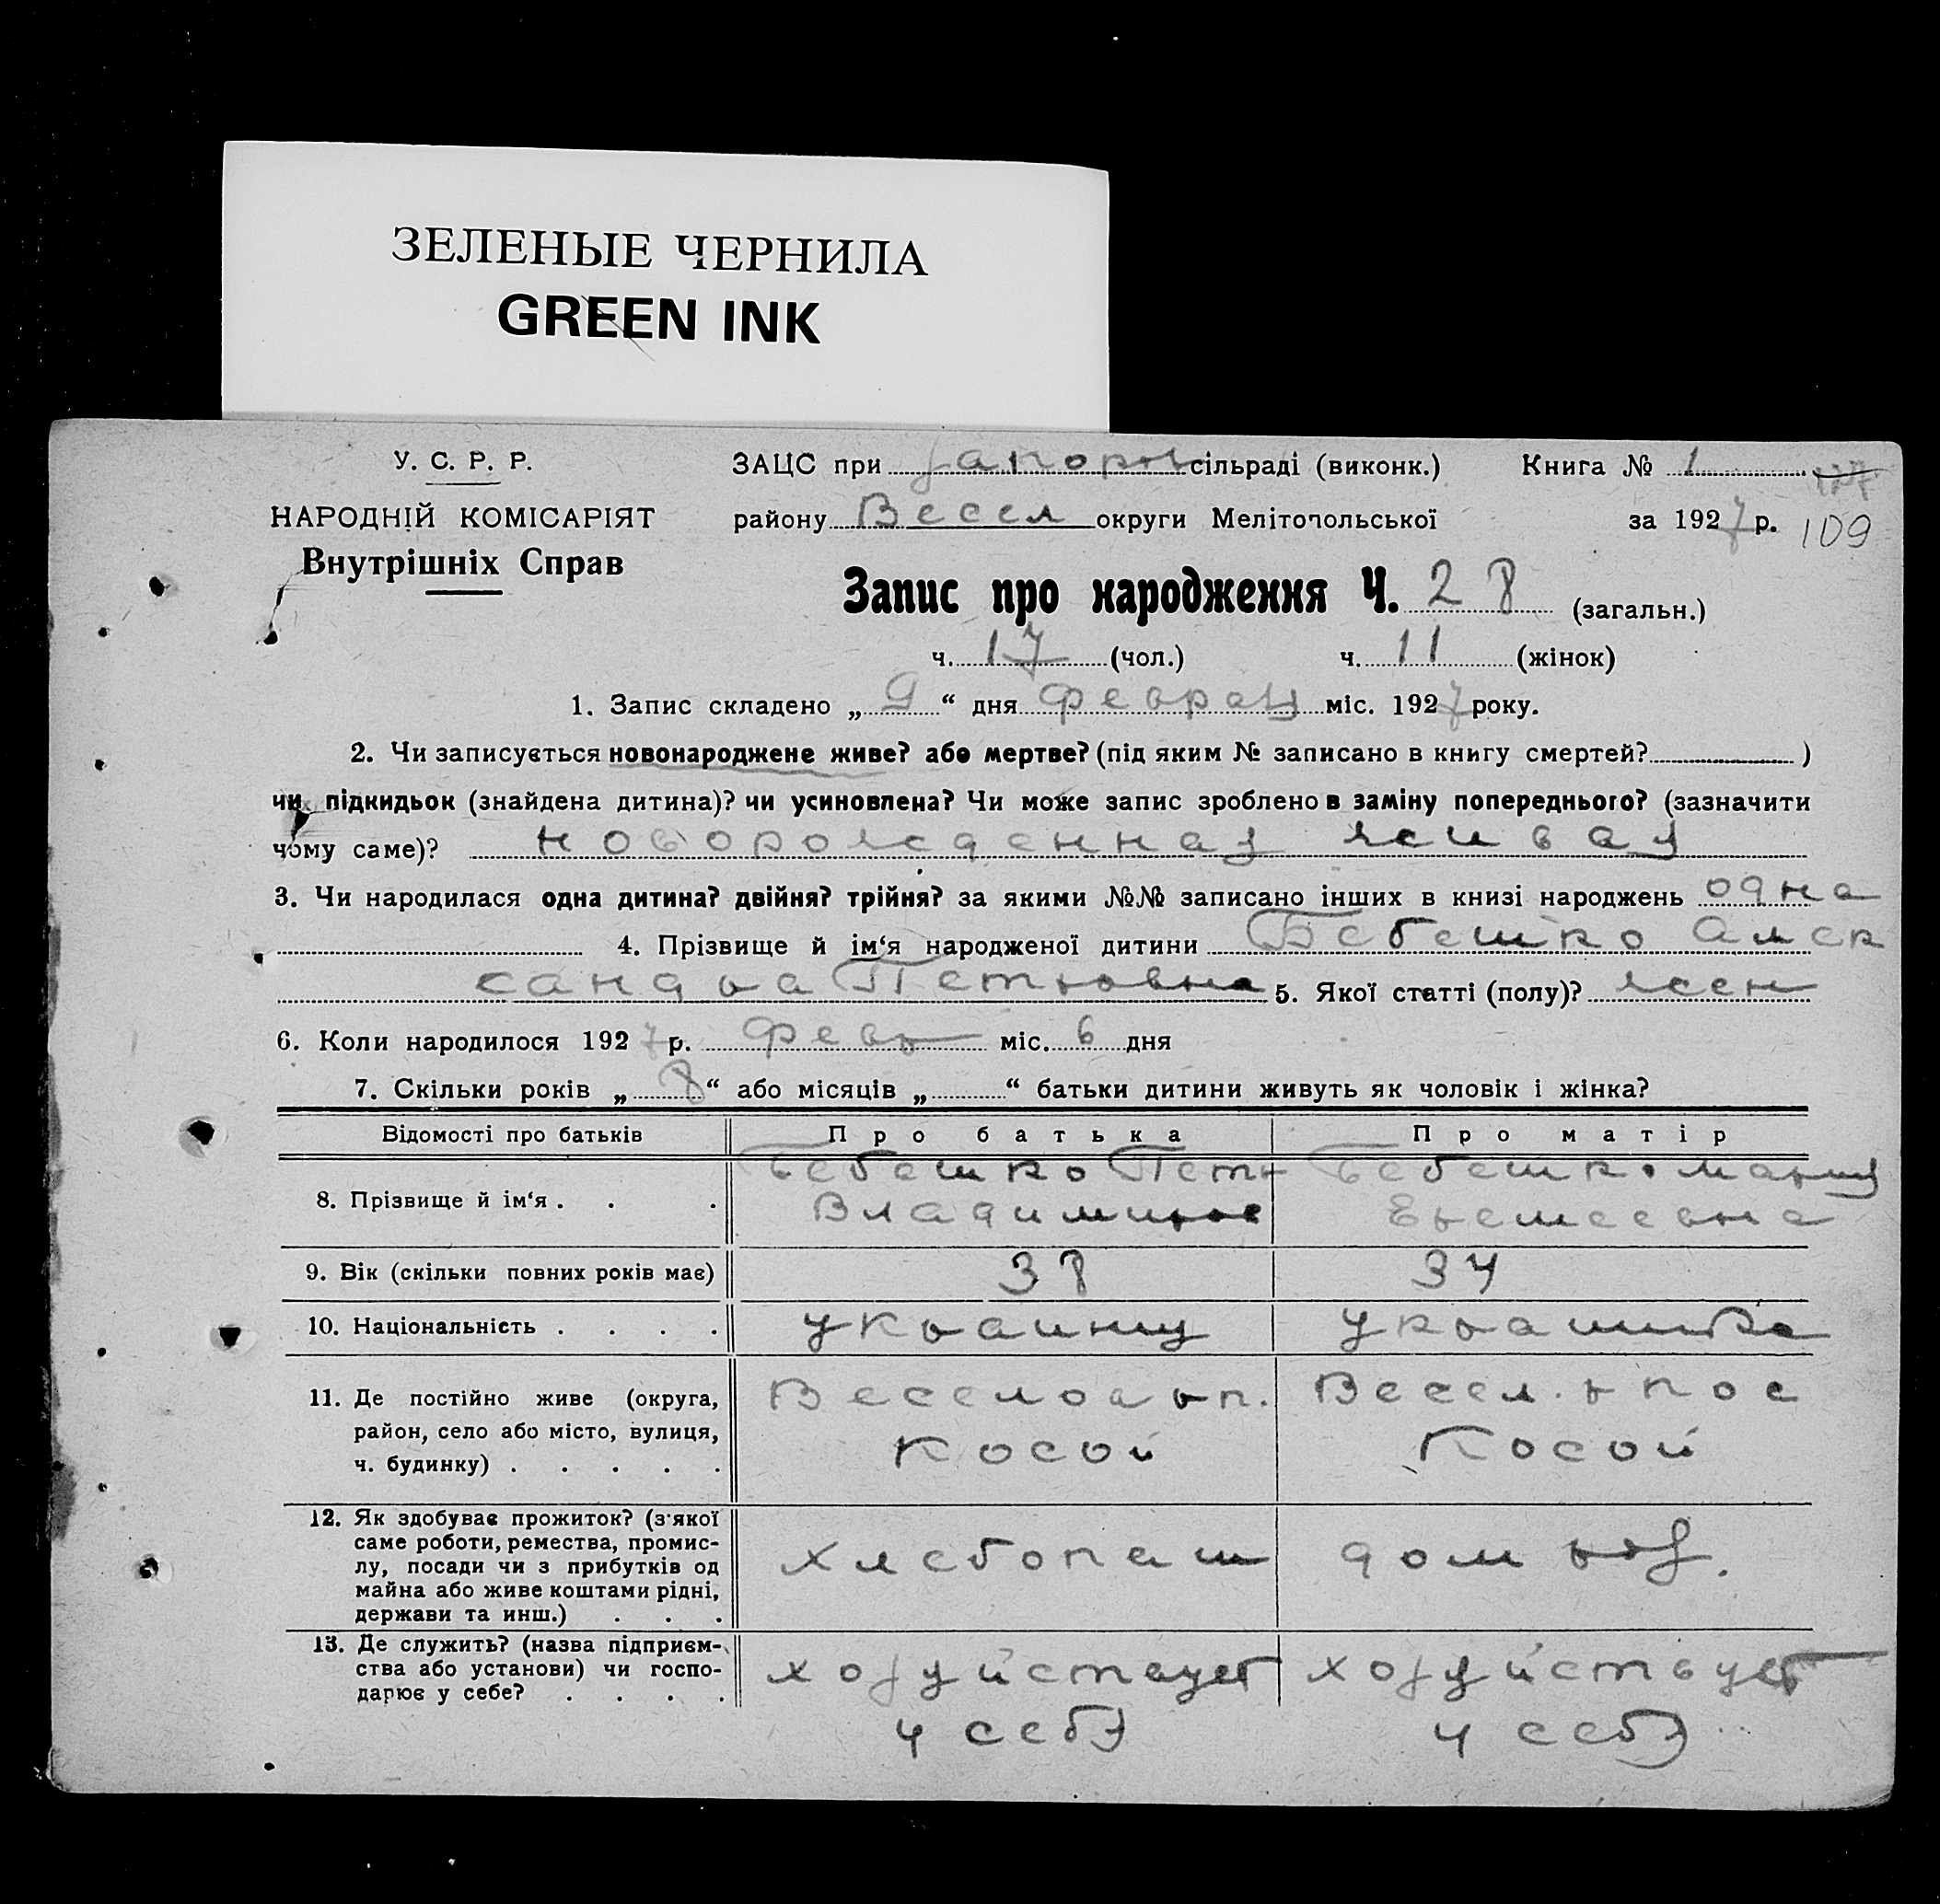 ЗЕЛЕНЫЕ ЧЕРНИЛА
GREEN INK
У. С. Р. Р.
НАРОДНІЙ КОМІСАРІЯТ
Внутрішніх Справ
ЗАЦС при Запорож сільраді (виконк.) Книга № 1
району Весел округи Мелітопольської за 1927 р. 109
Запис про народження Ч. 28 (загальн.)
ч. 17 (чол.) ч. 11 (жінок)
1. Запис складено „ 9 “ дня Феврал міс. 1927 року.
2. Чи записується новонароджене живе? або мертве? (під яким № записано в книгу смертей? )
чи підкидьок (знайдена дитина)? чи усиновлена? Чи може запис зроблено в заміну попереднього? (зазначити
чому саме)? новорожденная живая
3. Чи народилася одна дитина? двійня? трійня? за якими №№ записано інших в книзі народжень одна
4. Прізвище й ім‘я народженої дитини Бебешко Алек
сандра Петровна 5. Якої статті (полу)? жен
6. Коли народилося 1927 р. Февр міс. 6 дня
7. Скільки років „ 8 “ або місяців „ “ батьки дитини живуть як чоловік і жінка?
Відомості про батьків Про батька Про матір
8. Прізвище й ім‘я . . . Бебешко Петр Бебешко Мария
Владимиров Еремеевна
9. Вік (скільки повних років має) 38 34
10. Національність . . . . украинец украинка
11. Де постійно живе (округа, район, село або місто, вулиця, ч. будинку) . . . . . Веселоа рп. Весел.
Косой Косой
12. Як здобуває прожиток? (з‘якої
саме роботи, ремества, промис-
лу, посади чи з прибутків од
майна або живе коштами рідні,
держави та инш.) . . . хлебопаш дом хоз.
13. Де служить? (назва підприєм-
ства або установи) чи госпо-
дарює у себе? . . . . хозуйствует хозуйствует
у себэ у себэ